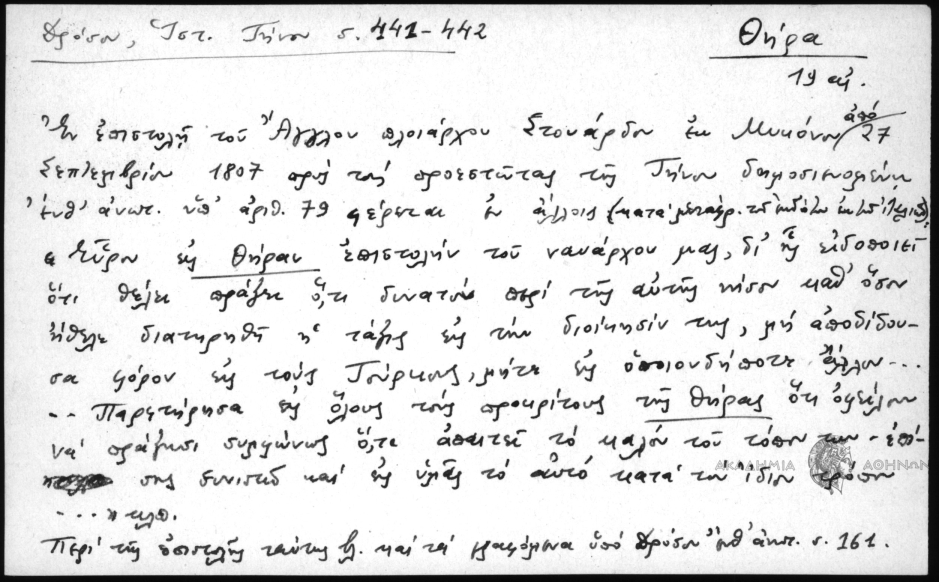 Δρόσου, Ἱστ. Τήνου σ. 441-442
Θήρα
19 αἰ.
Ἐν ἐπιστολῇ τοῦ Ἄγγλου πλοιάρχου Στουάρδου ἐκ Μυκόνου ἀπό 27
Σεπτεμβρίου 1807 πρός τούς προεστῶτας τῆς Τήνου δημοσιευομένῃ
ἔνθ' ἀνωτ. ὑπ' ἀριθ. 79 φέρεται ἐν ἄλλοις (κατά μεταφρ. τοῦ ἐκδότου ἐκ τοῦ
« Εὗρον εἰς Θήραν ἐπιστολήν τοῦ ναυάρχου μας, δι' ἧς εἰδοποιεῖ
ὅτι θέλει πράξει ὅ,τι δυνατόν περί τῆς αὐτῆς νήσου καθ' ὅσον
ἤθελε διατηρηθῆ ἡ τάξις εἰς τήν διοίκησίν της, μή ἀποδίδου-
σα φόρον εἰς τούς Τούρκους, μήτε εἰς ὁποιονδήποτε ἄλλον...
.. Παρετήρησα εἰς ὅλους τούς προκρίτους τῆς Θήρας ὅτι ὀφείλουν
νά πράξωσι συμφώνως ὅ,τι ἀπαιτεῖ τό καλόν τοῦ τόπου των - ἐπί-
σης συνιστῶ καί εἰς ὑμᾶς τό αὐτό κατά τόν ἴδιον τρόπον
....» κλπ.
Περί τῆς ἐπιστολῆς ταύτης βλ. καί τά γραφόμενα ὑπό Δρόσου ἔνθ' ἀνωτ. σ. 161.
ΑΚΑΔΗΜΙΑ ΑΘΗΝΩΝ